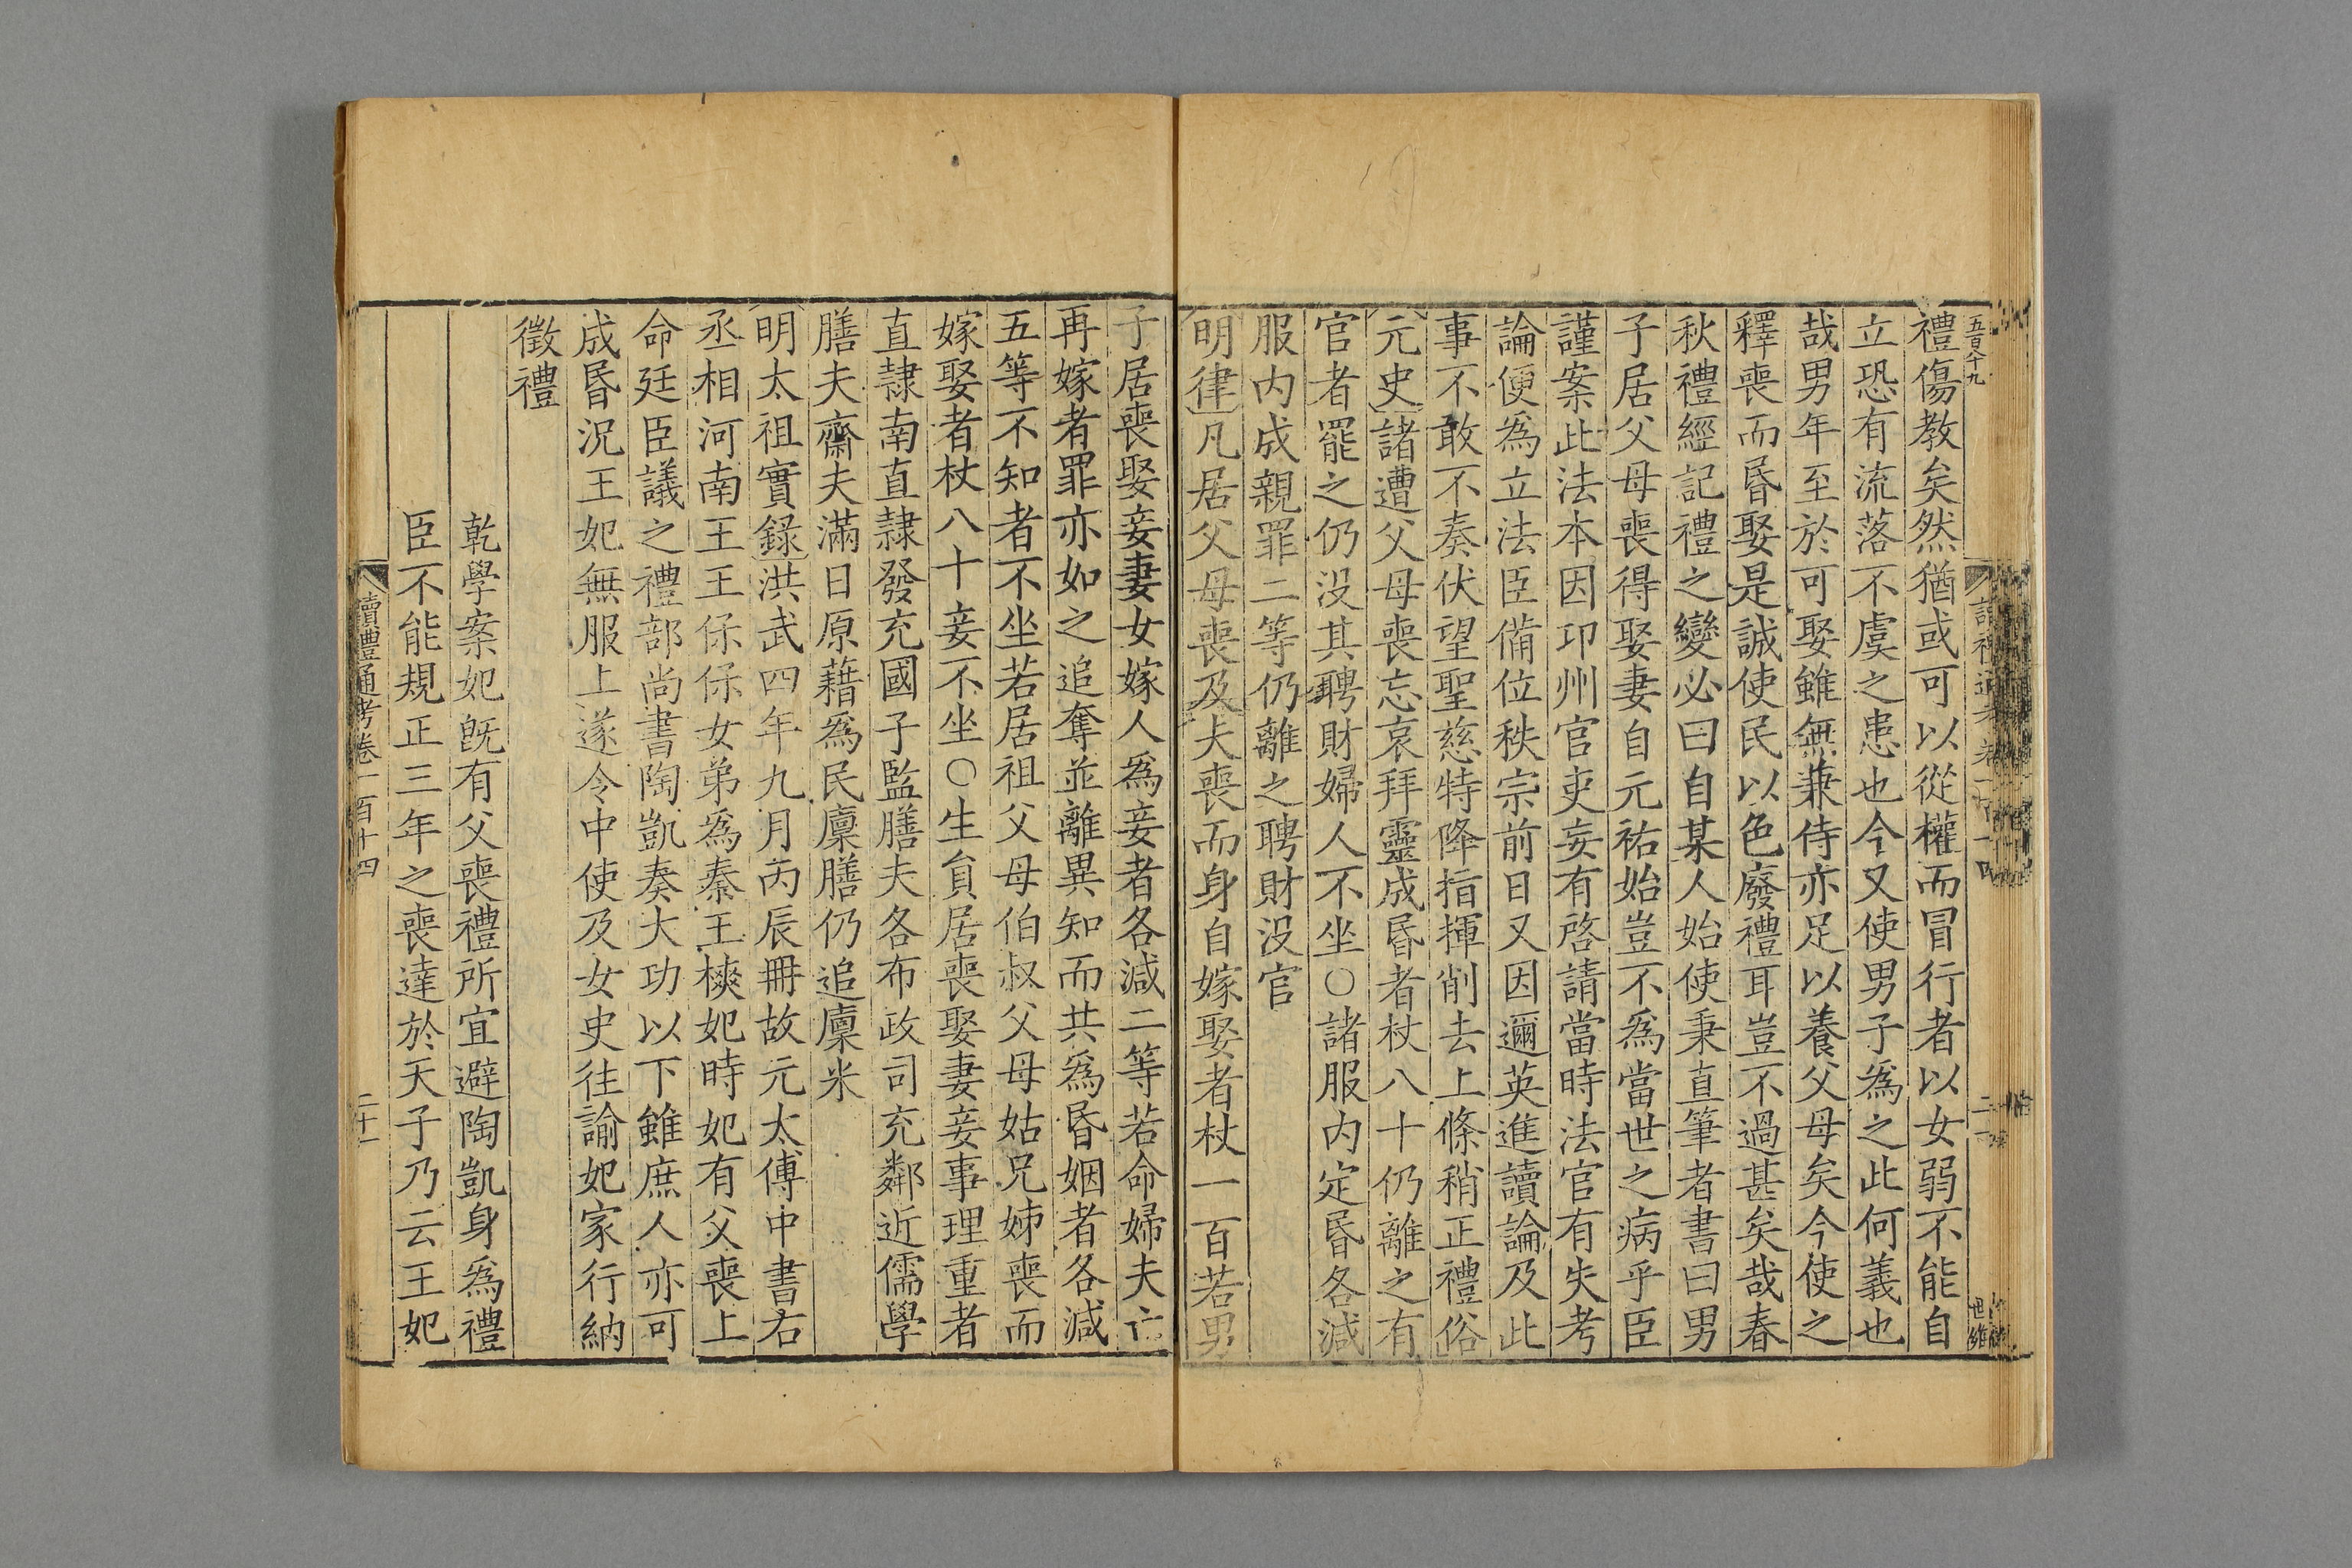 禮傷教矣然猶或可以從權而冒行者以女弱不能自
立恐有流落不虞之患也今又使男子為之此何義也
哉男年至於可娶雖無兼侍亦足以養父母矣今使之
釋喪而昏娶是誠使民以色廢禮耳豈不過甚矣哉春
秋禮經記禮之變必曰自某人始使秉直筆者書曰男
子居父母喪得娶妻自元祐始豈不為當世之病乎臣
謹案此法本因卭州官吏妄有啓請當時法官有失考
論便為立法臣備位秩宗前日又因邇英進讀論及此
事不敢不奏伏望聖慈特降指揮削去上條稍正禮俗
元史諸遭父母喪忘哀拜靈成昏者杖八十仍離之有
官者罷之仍没其聘財婦人不坐○諸服内定昏各減
服内成親罪二等仍離之聘財没官
明律凡居父母喪及夫喪而身自嫁娶者杖一百若男
子居喪娶妾妻女嫁人為妾者各減二等若命婦夫亡
再嫁者罪亦如之追奪並離異知而共為昏姻者各減
五等不知者不坐若居祖父母伯叔父母姑兄姊喪而
嫁娶者杖八十妾不坐○生員居喪娶妻妾事理重者
直隷南直隷發充國子監膳夫各布政司充鄰近儒學
膳夫齋夫滿日原藉為民廩膳仍追廩米
明太祖實録洪武四年九月丙辰冊故元太傅中書右
丞相河南王王保保女弟為秦王樉妃時妃有父喪上
命廷臣議之禮部尚書陶凱奏大功以下雖庶人亦可
成昏況王妃無服上遂令中使及女史往諭妃家行納
徵禮
乾學案妃旣有父喪禮所宜避陶凱身為禮
臣不能規正三年之喪達於天子乃云王妃
讀禮通考卷一百十四
二十一